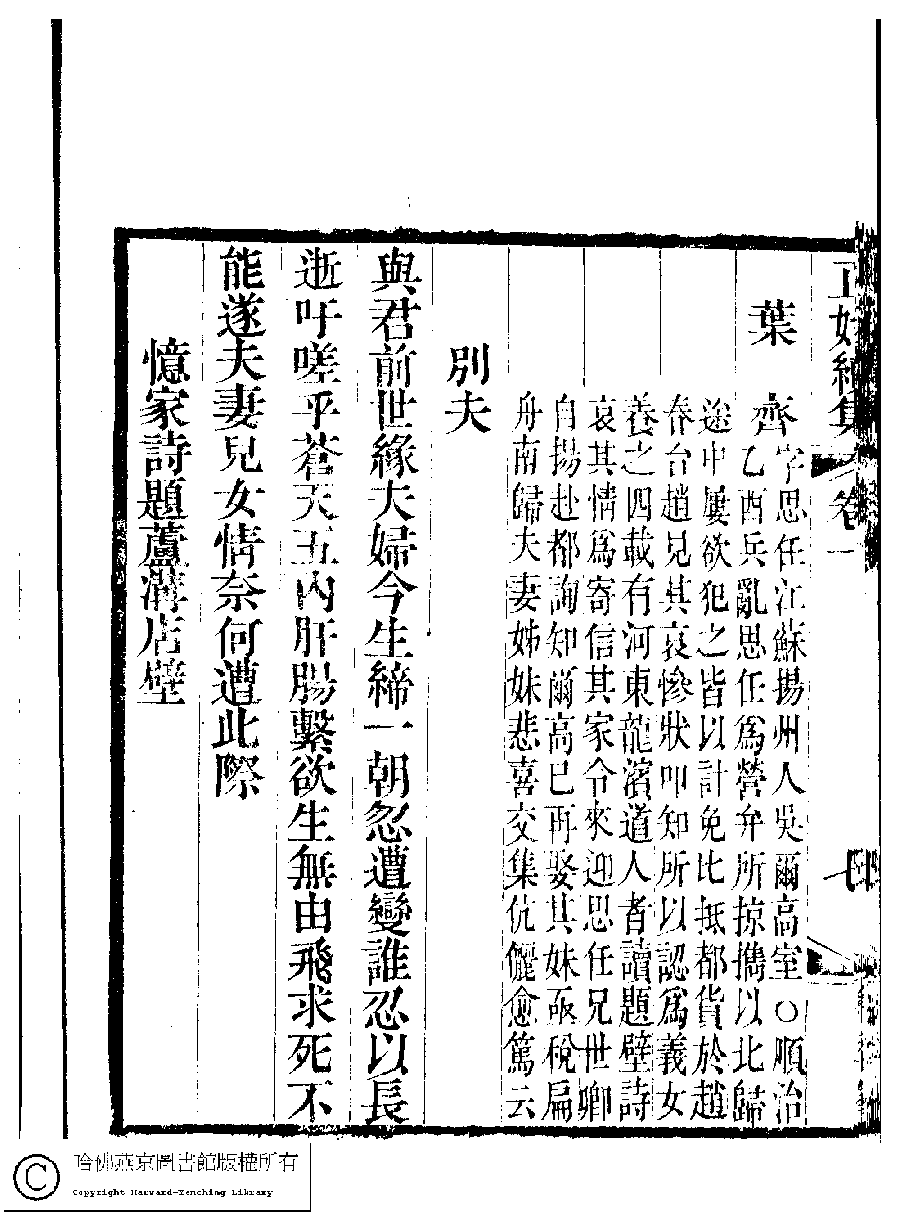 正始續集 卷一 七
葉 齊 字思任江蘇揚州人吳爾高室○順治
乙酉兵亂思任爲營弁所掠擕以北歸
途中屢欲犯之皆以計免比抵都貨於趙
春台趙見其哀慘狀叩知所以認爲義女
養之四載有河東龍濱道人者讀題壁詩
哀其情爲寄信其家令來迎思任兄世卿
自揚赴都詢知爾高已再娶其妹亟稅扁
舟南歸夫妻姊妹悲喜交集伉儷愈篤云
別夫
與君前世緣夫婦今生締一朝忽遭變誰忍以長
逝吁嗟乎蒼天五內肝腸繫欲生無由飛求死不
能遂夫妻兒女情奈何遭此際
憶家詩題蘆溝店壁
哈佛燕京圖書館版權所有
Copyright Harvard-Yenching Library